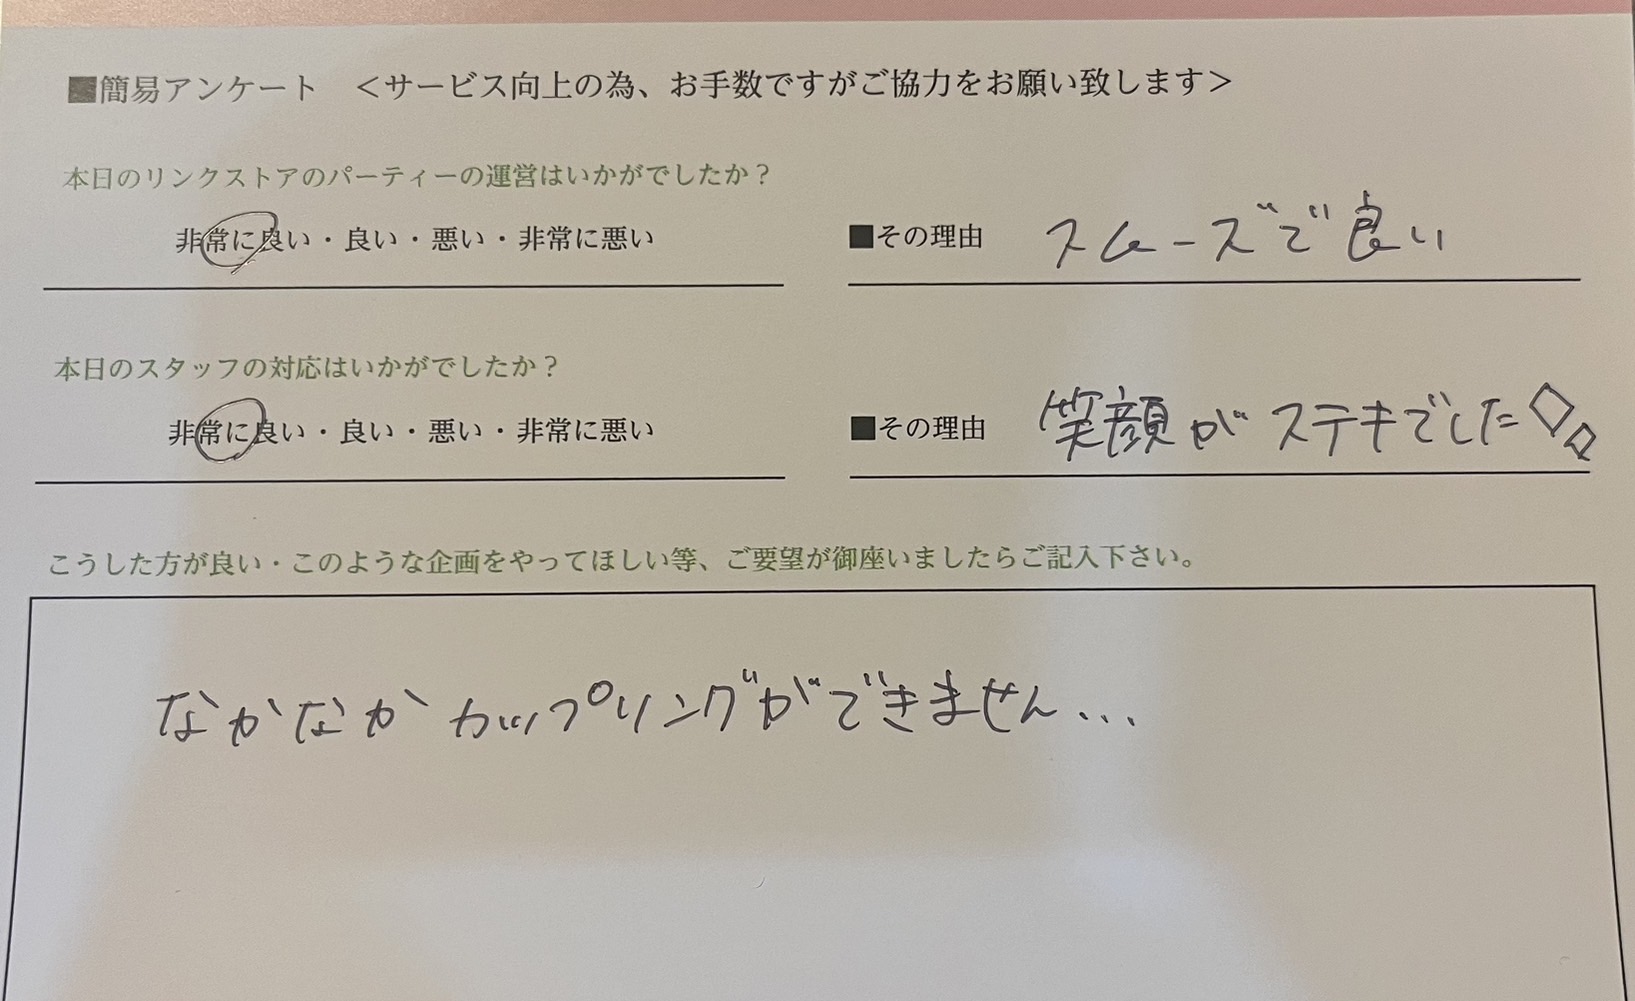 ■簡易アンケート　＜サービス向上の為、お手数ですがご協力をお願い致します＞
本日のリンクストアのパーティーの運営はいかがでしたか？
非常に良い・良い・悪い・非常に悪い　■その理由　スムーズで良い
本日のスタッフの対応はいかがでしたか？
非常に良い・良い・悪い・非常に悪い　■その理由　笑顔がステキでした
こうした方が良い・このような企画をやってほしい等、ご要望が御座いましたらご記入下さい。
なかなかカップリングができません...